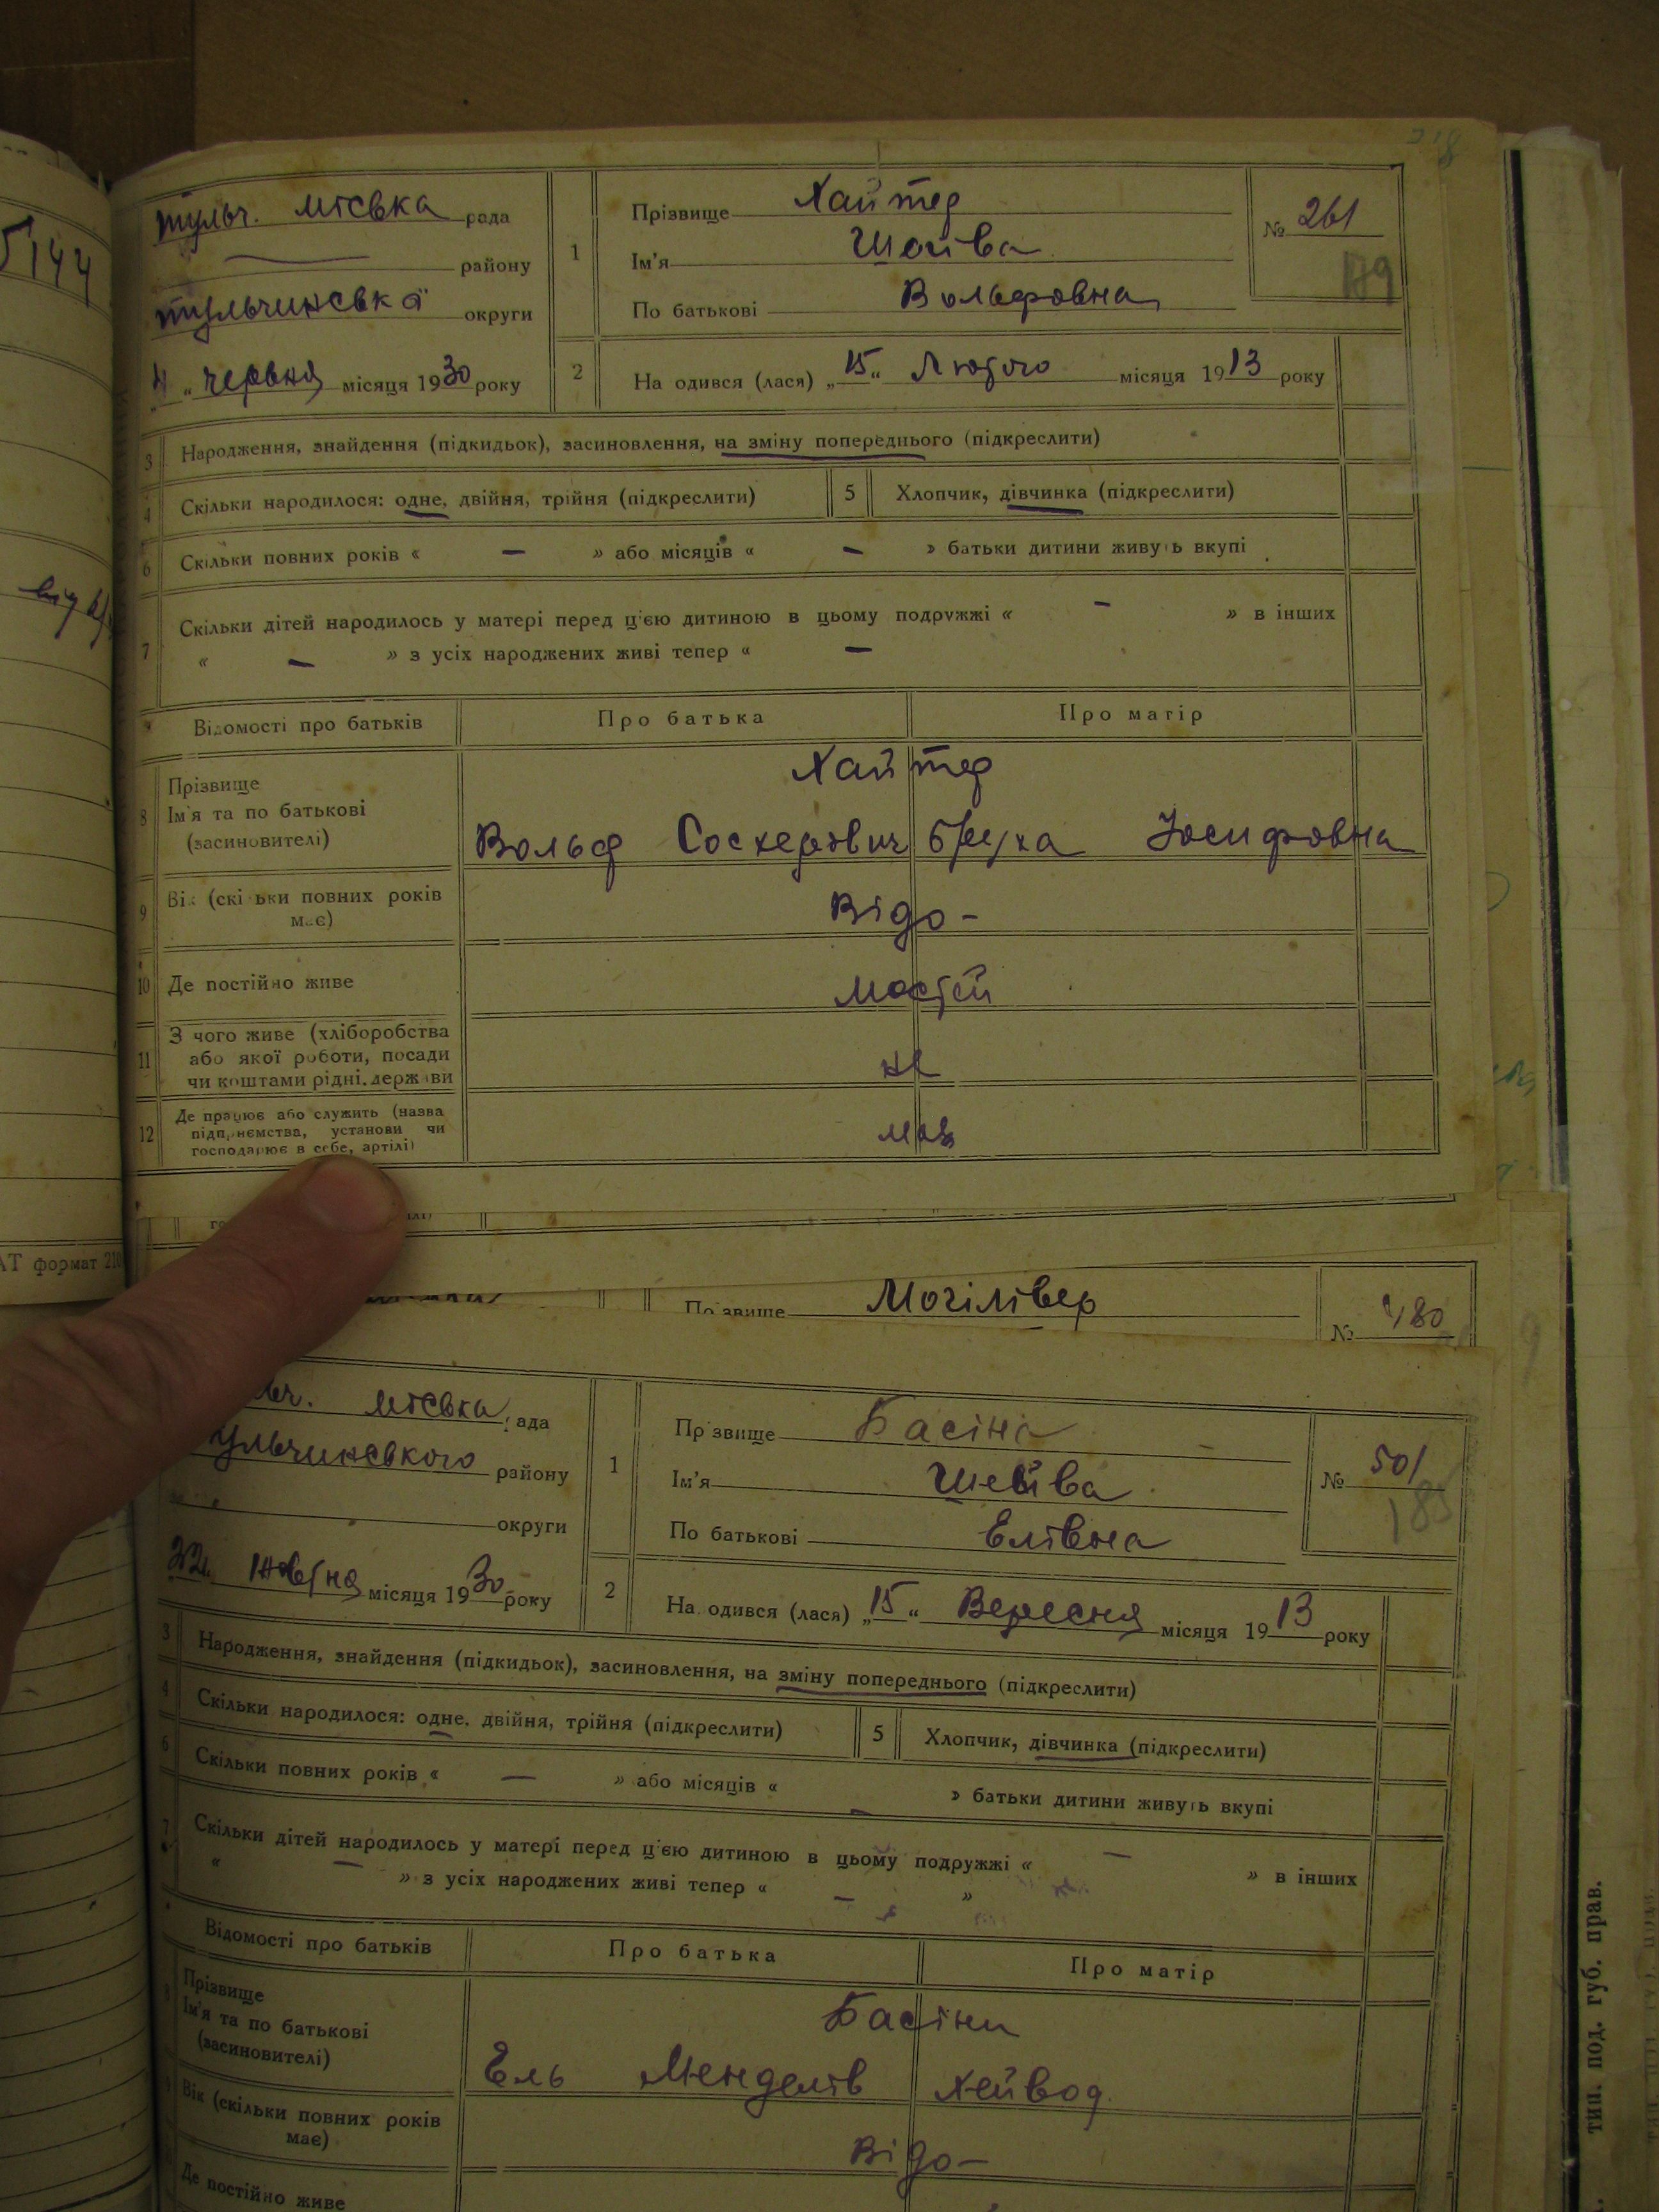 218
144
тульч. місвка рада
району
тульчинсвкої округи
4 „ червня місяця 1930 року
1
Прізвище Хайтер
Ім'я Шейва
По батькові Вольфовна
№ 261
179
2
На одився (лася) „15“ Лютого місяця 1913 року
3 Народження, знайдення (підкидьок), засиновлення, на зміну попереднього (підкреслити)
4 Скільки народилося: одне, двійня, трійня (підкреслити) 5 Хлопчик, дівчинка (підкреслити)
6 Скільки повних років « — » або місяців « — » батьки дитини живуть вкупі
7 Скільки дітей народилось у матері перед ц'єю дитиною в цьому подружжі « — » в інших
« — » з усіх народжених живі тепер « —
Відомості про батьків Про батька Про матір
8 Прізвище
Ім'я та по батькові
(засиновителі)
Хайтер
Вольф Сосхерович Брука Йосифовна
9 Вік (скі ьки повних років
має)
Відо-
10 Де постійно живе
мостей
11 З чого живе (хліборобства
або якої роботи, посади
чи коштами рідні, держави
не
12 Де працює або служить (назва
підприємства, установи чи
господарює в себе, артілі)
має
АТ формат 210
По звище Могілівер
№ 480
місвка рада
ульчинсвкого району
округи
22 Жовтня місяця 1930 року
1
Пр звище Басіна
Ім'я Шейва
По батькові Елівна
№ 501
185
2
На одився (лася) „15“ Вересня місяця 1913 року
3 Народження, знайдення (підкидьок), засиновлення, на зміну попереднього (підкреслити)
4 Скільки народилося: одне, двійня, трійня (підкреслити) 5 Хлопчик, дівчинка (підкреслити)
6 Скільки повних років « — » або місяців « — » батьки дитини живуть вкупі
7 Скільки дітей народилось у матері перед ц'єю дитиною в цьому подружжі « — » в інших
« — » з усіх народжених живі тепер « — »
Відомості про батьків Про батька Про матір
Прізвище
Ім'я та по батькові
(засиновителі)
Басіни
Ель Менделів Хейвод
Вік (скільки повних років
має)
Відо-
Де постійно живе
тип. под. губ. прав.